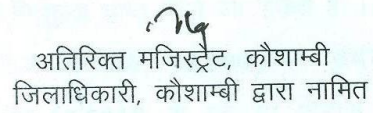 अतिरिक्त मजिस्ट्रेट, कौशाम्बी
जिलाधिकारी, कौशाम्बी द्वारा नामित